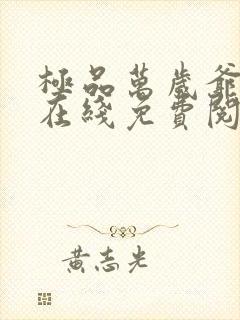 極品萬歲爺
在綫免費閱
黃志光